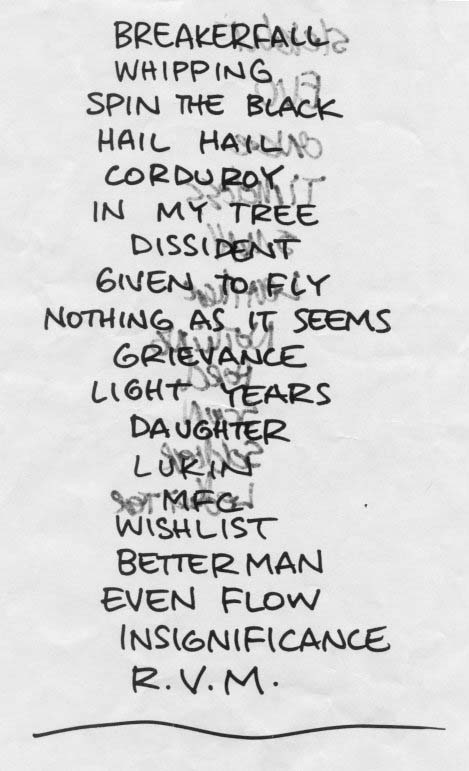 BREAKERFALL
WHIPPING
SPIN THE BLACK
HAIL HAIL
CORDUROY
IN MY TREE
DISSIDENT
GIVEN TO FLY
NOTHING AS IT SEEMS
GRIEVANCE
LIGHT YEARS
DAUGHTER
LUKIN
MFC
WISHLIST
BETTER MAN
EVEN FLOW
INSIGNIFICANCE
R.V.M.